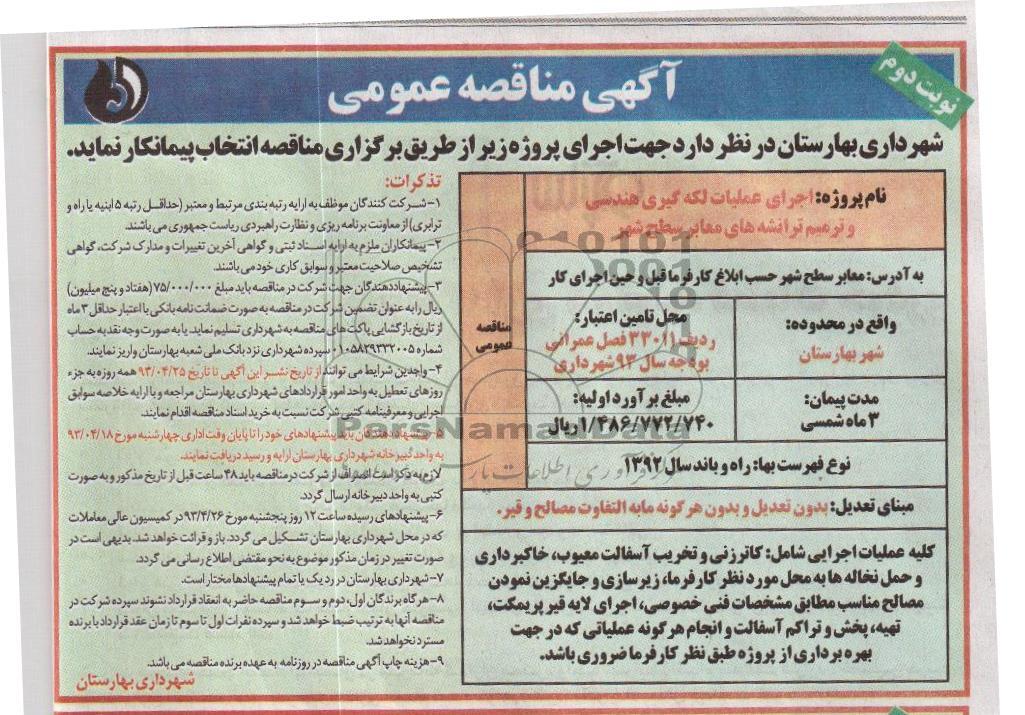 نوبت دوم
آگهی مناقصه عمومی
شهرداری بهارستان در نظر دارد جهت اجرای پروژه زیر از طریق برگزاری مناقصه انتخاب پیمانکار نماید.
مناقصه عمومی
نام پروژه: اجرای عملیات لکه گیری هندسی
و ترمیم ترانشه های معابر سطح شهر
به آدرس: معابر سطح شهر حسب ابلاغ کارفرما قبل و حین اجرای کار
واقع در محدوده:
شهر بهارستان
محل تامین اعتبار:
ردیف ۳۳۰۱۱ فصل عمرانی
بودجه سال ۹۳ شهرداری
مدت پیمان:
۳ ماه شمسی
مبلغ برآورد اولیه:
۱/۴۸۶/۷۷۲/۷۴۰ ریال
نوع فهرست بها: راه و باند سال ۱۳۹۲
مبنای تعدیل: بدون تعدیل و بدون هرگونه مابه التفاوت مصالح و قیر.
کلیه عملیات اجرایی شامل: کاترزنی و تخریب آسفالت معیوب، خاکبرداری
و حمل نخاله ها به محل مورد نظر کارفرما، زیرسازی و جایگزین نمودن
مصالح مناسب مطابق مشخصات فنی خصوصی، اجرای لایه قیر پریمکت،
تهیه، پخش و تراکم آسفالت و انجام هرگونه عملیاتی که در جهت
بهره برداری از پروژه طبق نظر کارفرما ضروری باشد.
تذکرات:
۱- شرکت کنندگان موظف به ارایه رتبه بندی مرتبط و معتبر (حداقل رتبه ۵ ابنیه یا راه و
ترابری) از معاونت برنامه ریزی و نظارت راهبردی ریاست جمهوری می باشند.
۲- پیمانکاران ملزم به ارایه اسناد ثبتی و گواهی آخرین تغییرات و مدارک شرکت، گواهی
تشخیص صلاحیت معتبر و سوابق کاری خود می باشند.
۳- پیشنهاددهندگان جهت شرکت در مناقصه باید مبلغ ۷۵/۰۰۰/۰۰۰ (هفتاد و پنج میلیون)
ریال را به عنوان تضمین شرکت در مناقصه به صورت ضمانت نامه بانکی با اعتبار حداقل ۳ ماه
از تاریخ بازگشایی پاکت های مناقصه به شهرداری تسلیم نماید. یا به صورت وجه نقد به حساب
شماره ۰۱۰۵۸۲۹۳۳۲۰۰۵ سپرده شهرداری نزد بانک ملی شعبه بهارستان واریز نمایند.
۴- واجدین شرایط می توانند از تاریخ نشر این آگهی تا تاریخ ۹۳/۰۴/۲۵ همه روزه به جزء
روزهای تعطیل به واحد امور قراردادهای شهرداری بهارستان مراجعه و با ارایه خلاصه سوابق
اجرایی و معرفینامه کتبی شرکت نسبت به خرید اسناد مناقصه اقدام نمایند.
۵- پیشنهاد دهندگان باید پیشنهادهای خود را تا پایان وقت اداری چهارشنبه مورخ ۹۳/۰۴/۱۸
به واحد دبیرخانه شهرداری بهارستان ارایه و رسید دریافت نمایند.
لازم به ذکر است انصراف از شرکت در مناقصه باید ۴۸ ساعت قبل از تاریخ مذکور و به صورت
کتبی به واحد دبیرخانه ارسال گردد.
۶- پیشنهادهای رسیده ساعت ۱۲ روز پنجشنبه مورخ ۹۳/۴/۲۶ در کمیسیون عالی معاملات
که در محل شهرداری بهارستان تشکیل می گردد. باز و قرائت خواهد شد. بدیهی است در
صورت تغییر در زمان مذکور موضوع به نحو مقتضی اطلاع رسانی می گردد.
۷- شهرداری بهارستان در رد یک یا تمام پیشنهادها مختار است.
۸- هرگاه برندگان اول، دوم و سوم مناقصه حاضر به انعقاد قرارداد نشوند سپرده شرکت در
مناقصه آنها به ترتیب ضبط خواهد شد و سپرده نفرات اول تا سوم تا زمان عقد قرارداد با برنده
مسترد نخواهد شد.
۹- هزینه چاپ آگهی مناقصه در روزنامه به عهده برنده مناقصه می باشد.
شهرداری بهارستان
ParsNamadData